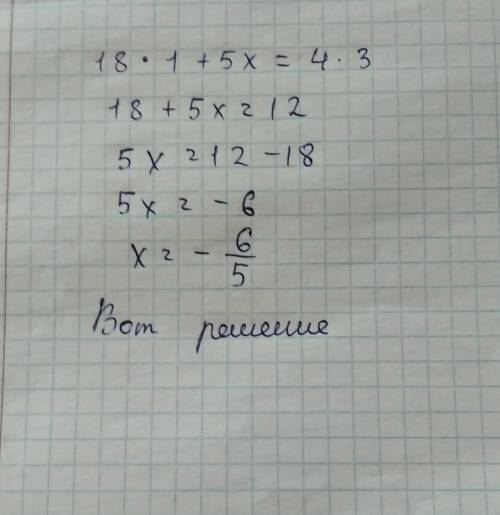 18 · 1 + 5x = 4 · 3
18 + 5x = 12
5x = 12 - 18
5x = - 6
x = - 6/5
Вот решение